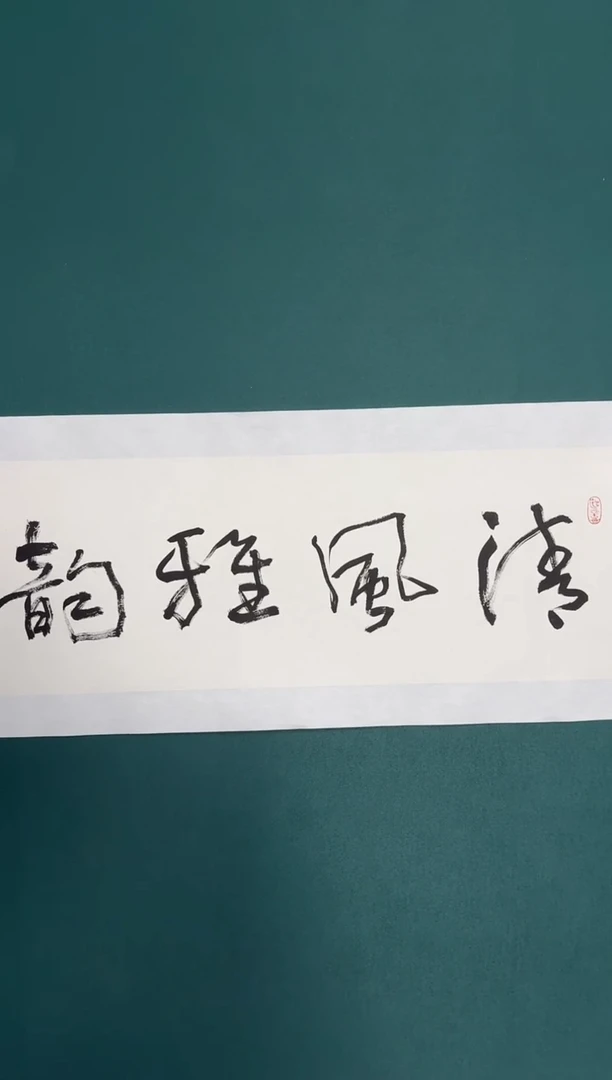 清風雅韵